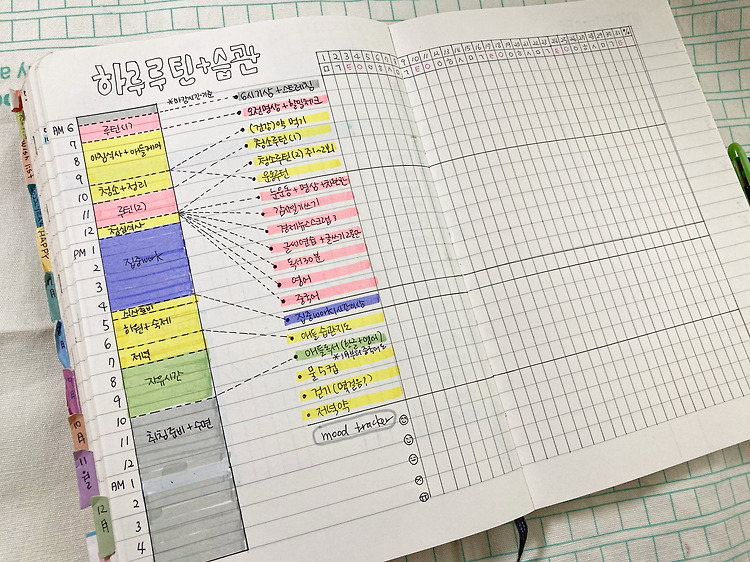 하루루틴+습관
*마감시간 기준
1 2 3 4 5 6 7 8 9 10 11 12 13 14 15 16 17 18 19 20 21 22 23 24 25 26 27 28 29 30 31
AM 6
7
8
9
10
11
12
PM 1
2
3
4
5
6
7
8
9
10
11
12
AM 1
2
3
4
루틴(1)
아침식사+아들케어
청소+정리
루틴(2)
점심식사
집중work
학원+숙제
저녁
자유시간
취침준비+수면
6시기상+스트레칭
오전명상+할일체크
(건강)약 먹기
청소루틴(1)
청소루틴(2) 주1~2회
운동루틴
감사일기쓰기
경제뉴스스크랩 3
글씨연습+글쓰기2줄만
독서30분
영어
중국어
집중work시간이상
아들 습관지도
아들독서(한글+영어)
물 5컵
걷기
저녁약
mood tracker
WISH LIST
HAPPY
10月
11月
12月